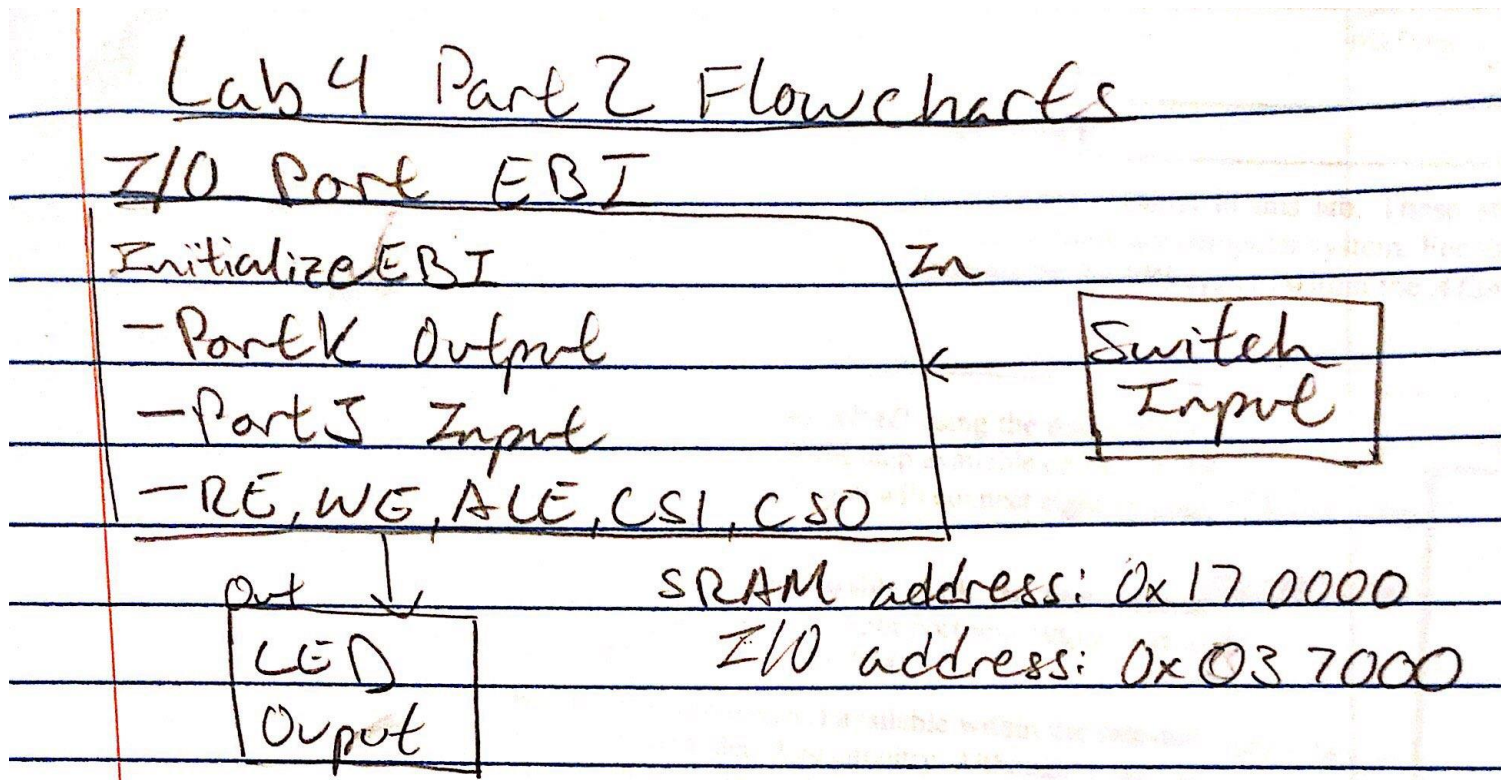 Lab 4 Part 2 Flowcharts
I/O Port EBI
Initialize EBI
- Port K Output
- Port J Input
- RE, WE, ALE, CS1, CS0
In
Switch
Input
Out
LED
Ouput
SRAM address: 0x170000
I/O address: 0x037000